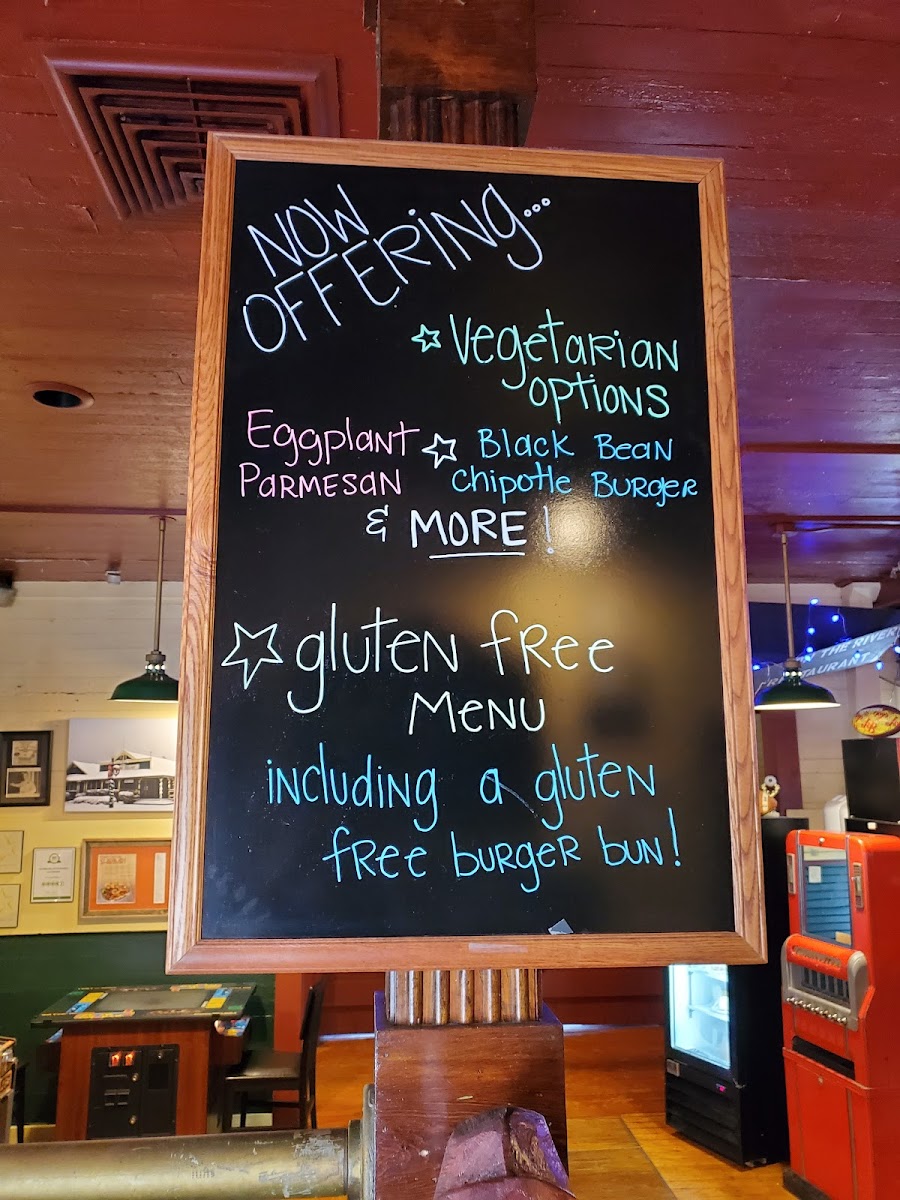 NOW
OFFERING...
☆ Vegetarian
options
Eggplant
Parmesan
☆ Black Bean
Chipotle Burger
& MORE!
☆ gluten free
Menu
including a gluten
free burger bun!
THE RIVER
RESTAURANT